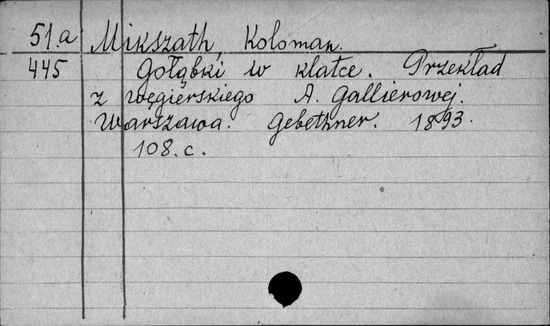 51.a Mikszath, Koloman.
445 Gołąbki w klatce. Przekład
z węgierskiego A. Gallierowej.
Warszawa. Gebethner. 1893.
108. c.